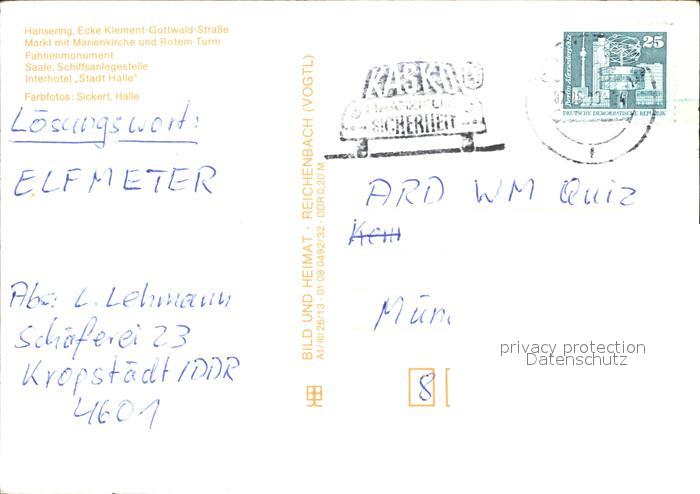 Hansering, Ecke Klement-Gottwald-Straße
Markt mit Marienkirche und Rotem Turm
Fahnenmonument
Saale, Schiffsanlegestelle
Interhotel „Stadt Halle"
Farbfotos: Sickert, Halle
Lösungswort:
ELFMETER
Abs: L. Lehmann
Schäferei 23
Kropstädt/DDR
4601
BILD UND HEIMAT · REICHENBACH (VOGTL)
A1/III/26/13 · 01 08 0492/32 · DDR 0,20 M
KASKO
SICHERHEIT
25
Berlin, Alexanderplatz
DEUTSCHE DEMOKRATISCHE REPUBLIK
ARD WM Quiz
Mün
8
privacy protection
Datenschutz